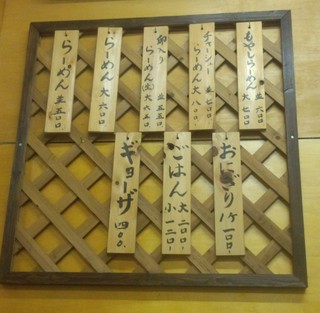 もやしらーめん 並 六〇〇
大 七〇〇
チャーシュー 並 七〇〇
らーめん 大 八〇〇
卵入り 並 五五〇
らーめん 大 六五〇
らーめん 大 六〇〇
らーめん 並 五〇〇
おにぎり 1ケ 一〇〇
ごはん 大 二〇〇
小 一二〇
ギョーザ 四〇〇